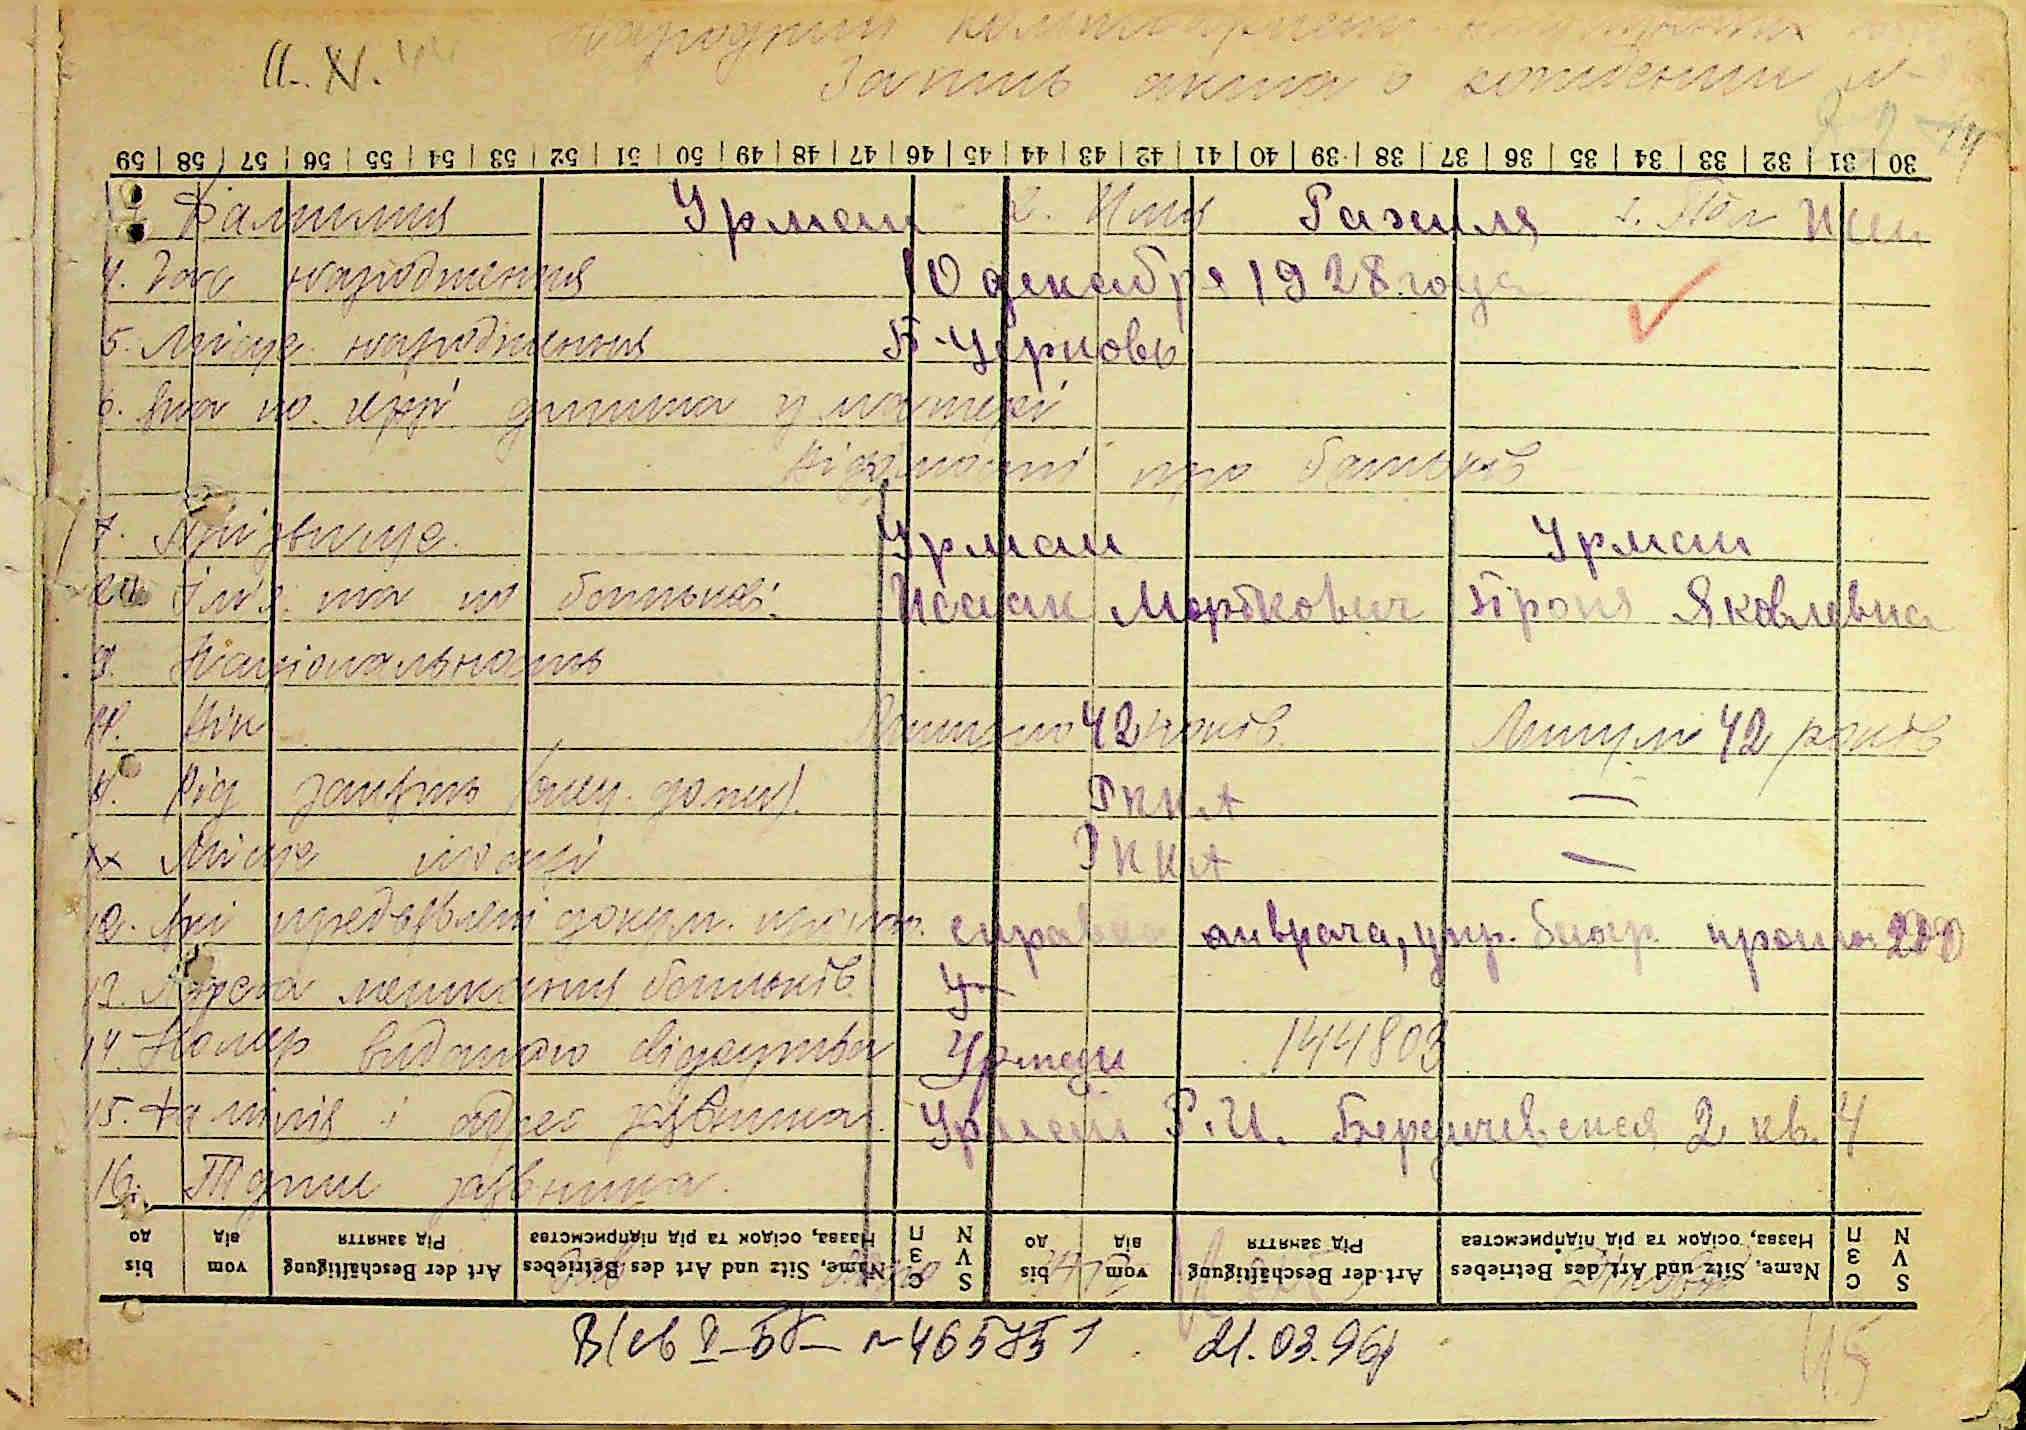 Запись акта о рождении №
59 | 58 | 57 | 56 | 55 | 54 | 53 | 52 | 51 | 50 | 49 | 48 | 47 | 46 | 45 | 44 | 43 | 42 | 41 | 40 | 39 | 38 | 37 | 36 | 35 | 34 | 33 | 32 | 31 | 30
1. Фамилия Урман 2. Имя Рахиля 3. Пол Жен
4. Час народження 10 декабря 1928 года
5. Місце народження Б-Церковь
6. Яка по черзі дитина у матері
Відомості про батьків
7. Прізвище Урман Урман
8. Ім'я та по батькові Исаак Мордкович Броня Яковлевна
9. Національность
10. Вік Минуло 42 років Минуло 42 років
11. Рід занять РККА —
Місце праці РККА —
12. Які предъявлені докум. справка врача, упр.
13. Адреса мешкання батьків
14. Номер виданого свідоцтва Урман 144803
15. Фамілія і адрес заявника Урман Р.И. Бердичевская 2 кв. 4
16. заявника
до від Рід заняття Назва, осідок та рід підприємства П З С N V S до від Рід заняття Назва, осідок та рід підприємства П З С N V S
bis vom Art der Beschäftigung Name, Sitz und Art des Betriebes bis vom Art der Beschäftigung Name, Sitz und Art des Betriebes
№ 465751 21.03.96